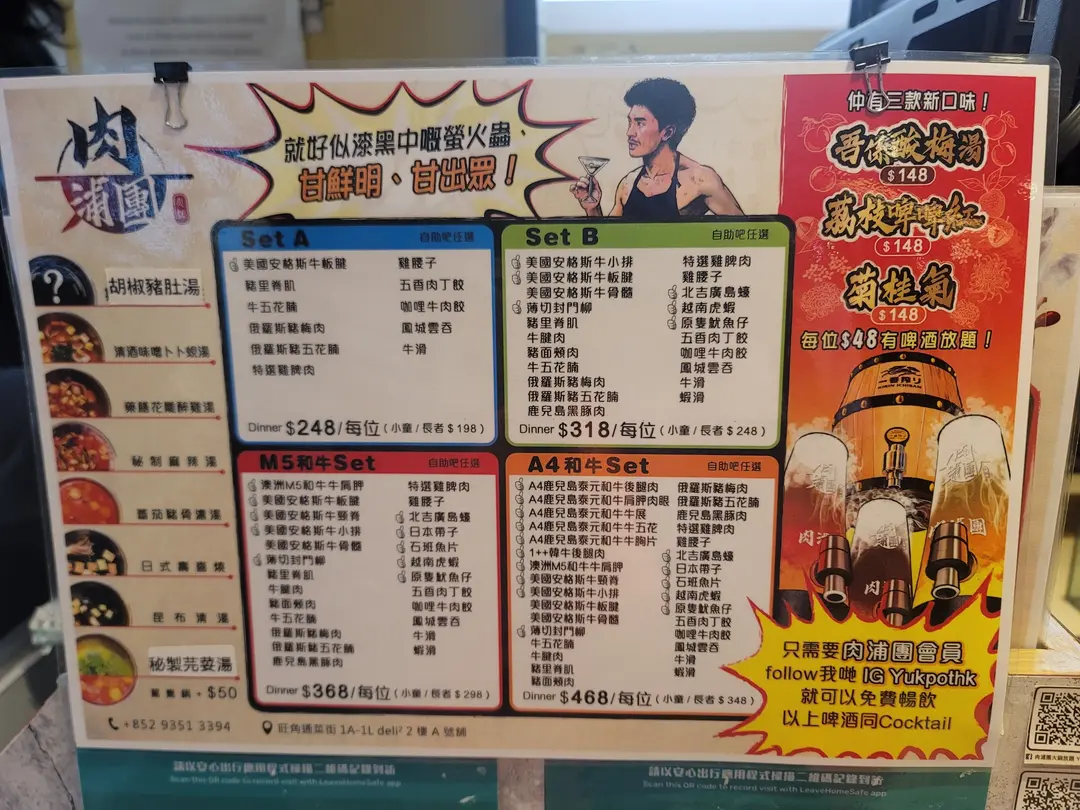 肉
浦團
就好似漆黑中嘅螢火蟲、
甘鮮明、甘出眾！
仲有三款新口味！
吾凍酸梅湯
$148
荔枝啤啤紅
$148
菊桂氣
$148
每位$48有啤酒放題！
一番搾り
KIRIN ICHIBAN
胡椒豬肚湯
清酒味噌卜卜蜆湯
藥膳花雕醉雞湯
秘制麻辣湯
番茄豬骨濃湯
日式壽喜燒
昆布清湯
秘製芫荽湯
鴛鴦鍋 + $50
Set A 自助吧任選
美國安格斯牛板腱 雞腰子
豬里脊肌 五香肉丁餃
牛五花腩 咖哩牛肉餃
俄羅斯豬梅肉 鳳城雲吞
俄羅斯豬五花腩 牛滑
特選雞脾肉
Dinner $248/每位(小童/長者$198)
Set B 自助吧任選
美國安格斯牛小排 特選雞脾肉
美國安格斯牛板腱 雞腰子
美國安格斯牛骨髓 北吉廣島蠔
薄切封門柳 越南虎蝦
豬里脊肌 原隻魷魚仔
牛腱肉 五香肉丁餃
豬面頰肉 咖哩牛肉餃
牛五花腩 鳳城雲吞
俄羅斯豬梅肉 牛滑
俄羅斯豬五花腩 蝦滑
鹿兒島黑豚肉
Dinner $318/每位(小童/長者$248)
M5和牛Set 自助吧任選
澳洲M5和牛牛肩胛 特選雞脾肉
美國安格斯牛板腱 雞腰子
美國安格斯牛頸脊 北吉廣島蠔
美國安格斯牛小排 日本帶子
美國安格斯牛骨髓 石班魚片
薄切封門柳 越南虎蝦
豬里脊肌 原隻魷魚仔
牛腱肉 五香肉丁餃
豬面頰肉 咖哩牛肉餃
牛五花腩 鳳城雲吞
俄羅斯豬梅肉 牛滑
俄羅斯豬五花腩 蝦滑
鹿兒島黑豚肉
Dinner $368/每位(小童/長者$298)
A4和牛Set 自助吧任選
A4鹿兒島泰元和牛後腿肉 俄羅斯豬梅肉
A4鹿兒島泰元和牛肩胛肉眼 俄羅斯豬五花腩
A4鹿兒島泰元和牛牛展 鹿兒島黑豚肉
A4鹿兒島泰元和牛牛五花 特選雞脾肉
A4鹿兒島泰元和牛牛胸片 雞腰子
1++韓牛後腿肉 北吉廣島蠔
澳洲M5和牛牛肩胛 日本帶子
美國安格斯牛頸脊 石班魚片
美國安格斯牛小排 越南虎蝦
美國安格斯牛板腱 原隻魷魚仔
美國安格斯牛骨髓 五香肉丁餃
薄切封門柳 咖哩牛肉餃
牛五花腩 牛滑
牛腱肉 蝦滑
豬里脊肌 鳳城雲吞
豬面頰肉
Dinner $468/每位(小童/長者$348)
只需要肉浦團會員
follow我哋 IG Yukpothk
就可以免費暢飲
以上啤酒同Cocktail
+852 9351 3394
旺角通菜街 1A-1L deli² 2 樓 A 號舖
請以安心出行應用程式掃描二維碼記錄到訪
Scan this QR code to record visit with LeaveHomeSafe app
請以安心出行應用程式掃描二維碼記錄到訪
Scan this QR code to record visit with LeaveHomeSafe app